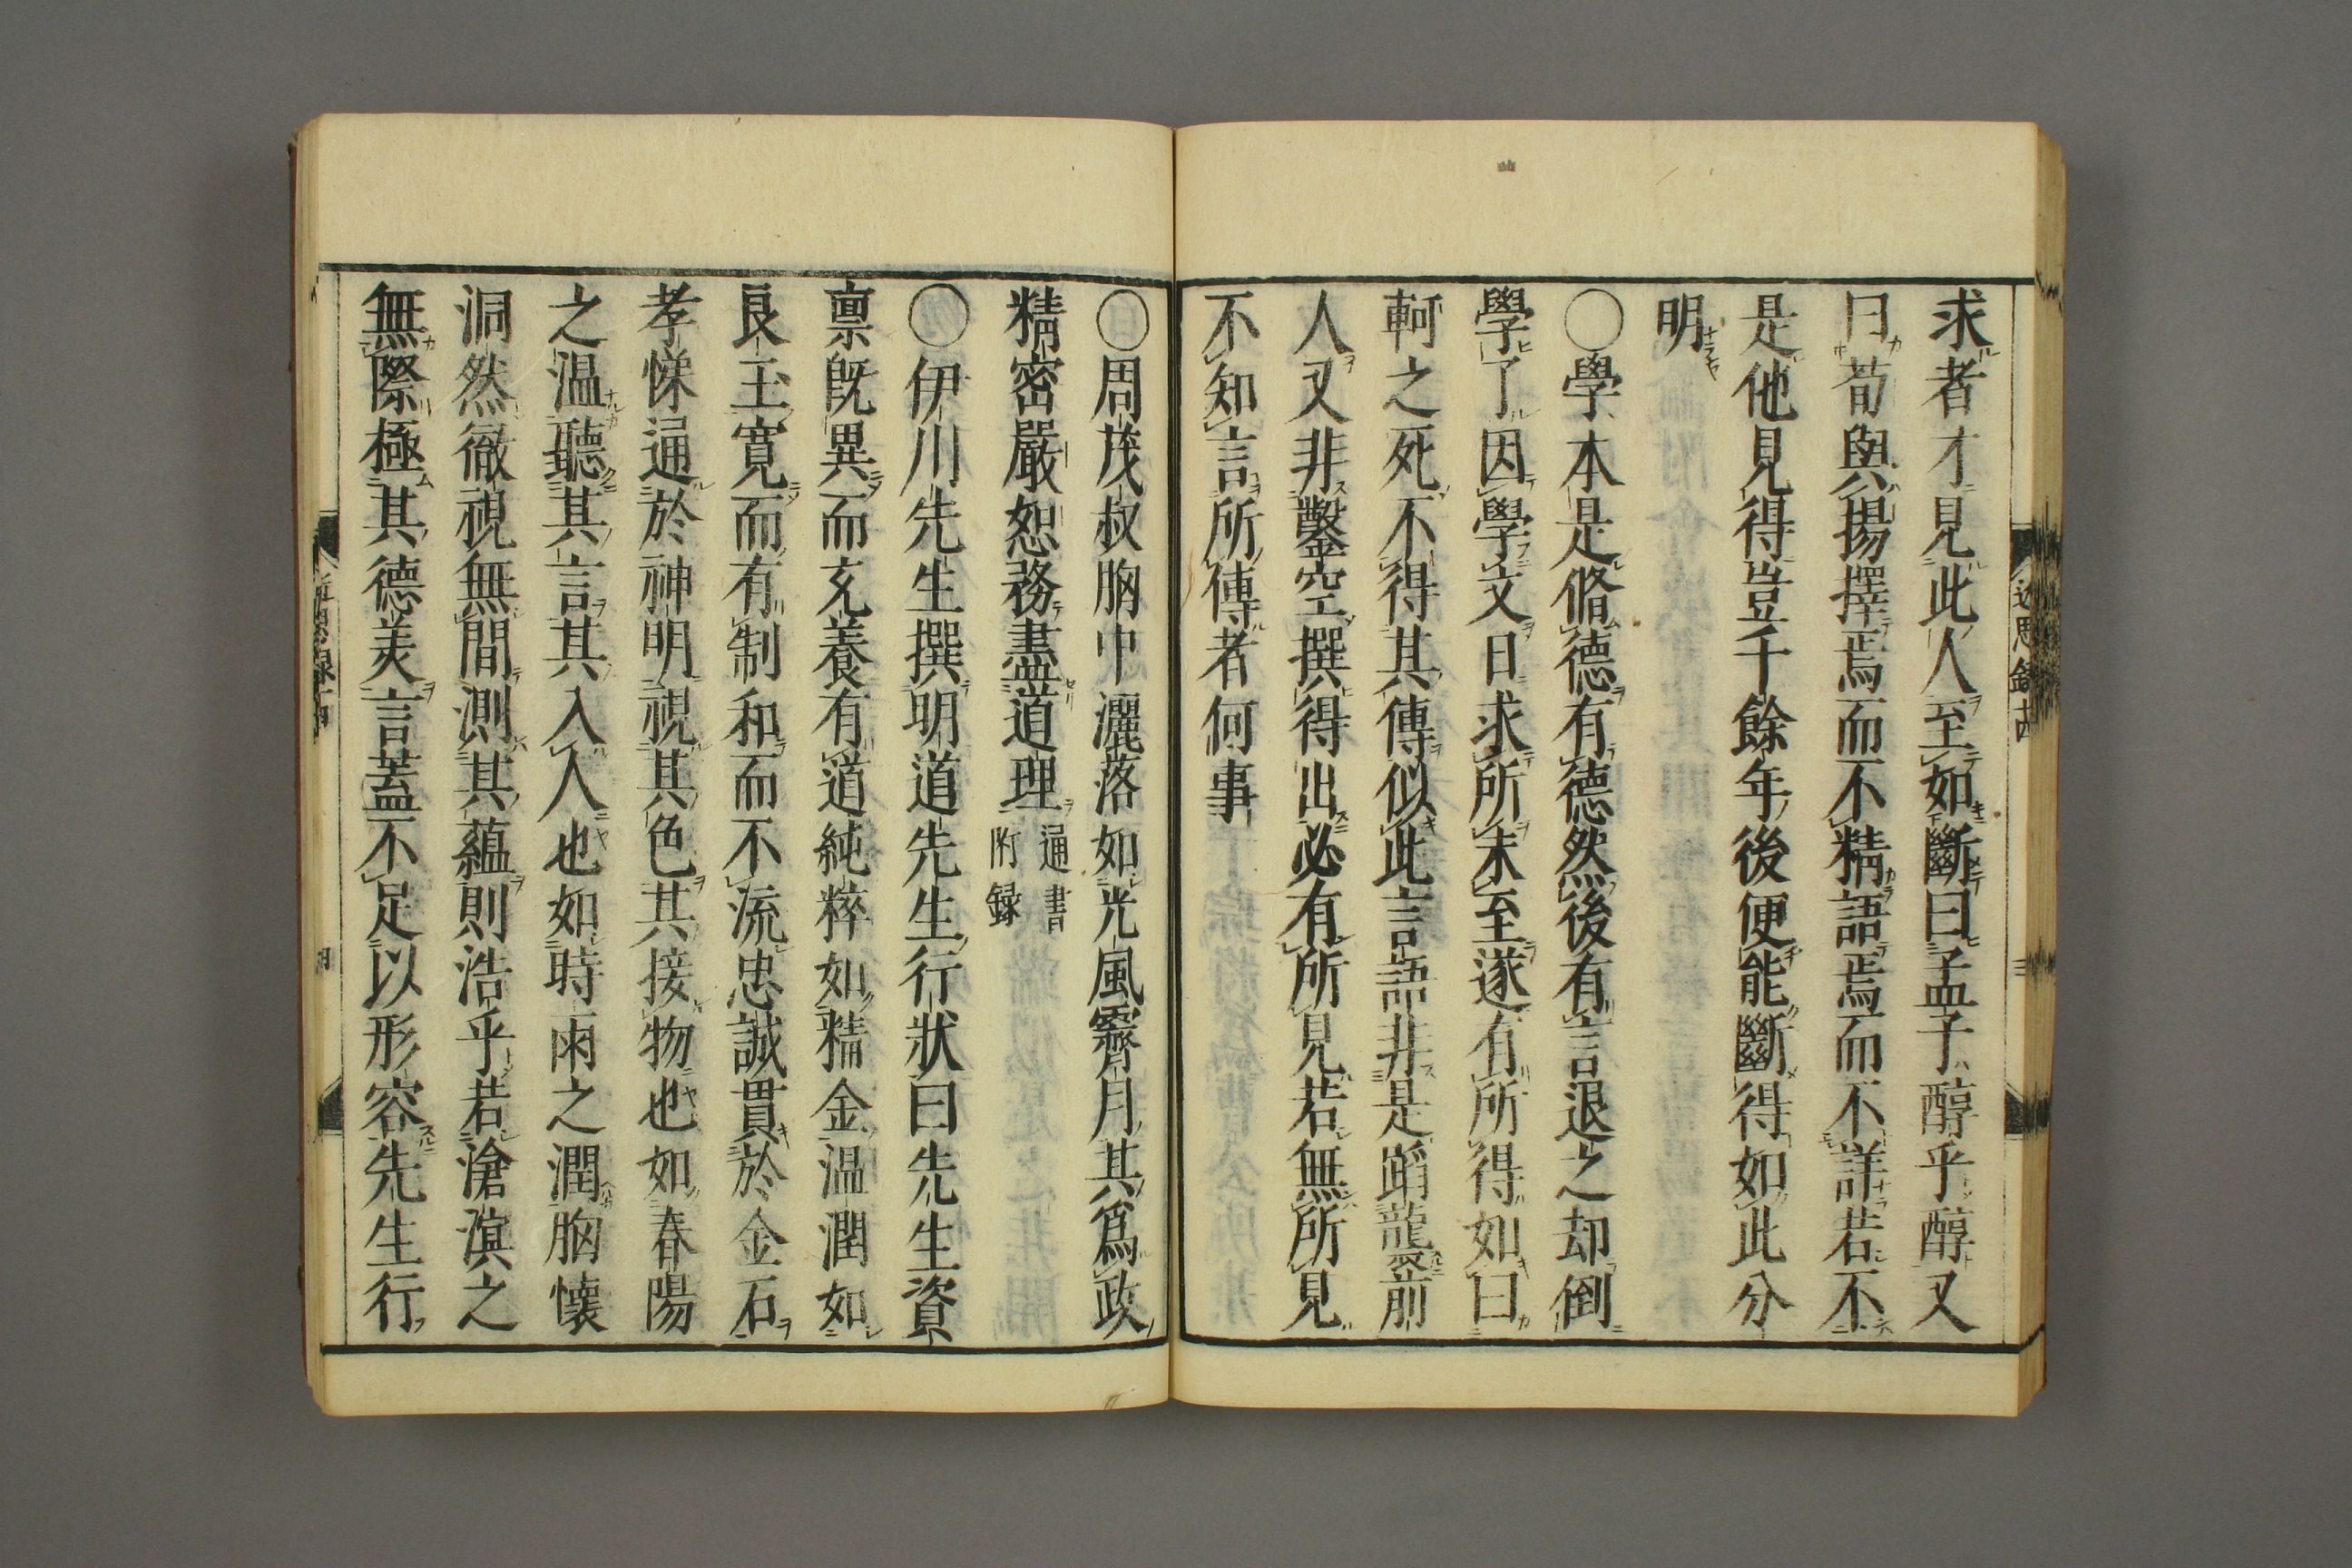 求者才見此人至如斷曰孟子醇乎醇又
曰荀與揚擇焉而不精語焉而不詳若不
是他見得豈千餘年後便能斷得如此分
明
○學本是脩德有德然後有言退之却倒
學了因學文日求所未至遂有所得如曰
軻之死不得其傳似此言語非是蹈襲前
人又非鑿空撰得出必有所見若無所見
不知言所傳者何事
○周茂叔胸中灑落如光風霽月其爲政
精密嚴恕務盡道理通書附録
○伊川先生撰明道先生行狀曰先生資
禀既異而充養有道純粹如精金温潤如
良玉寛而有制和而不流忠誠貫於金石
孝悌通於神明視其色其接物也如春陽
之温聽其言其入人也如時雨之潤胸懐
洞然徹視無間測其蘊則浩乎若滄溟之
無際極其德美言蓋不足以形容先生行
近思録十四